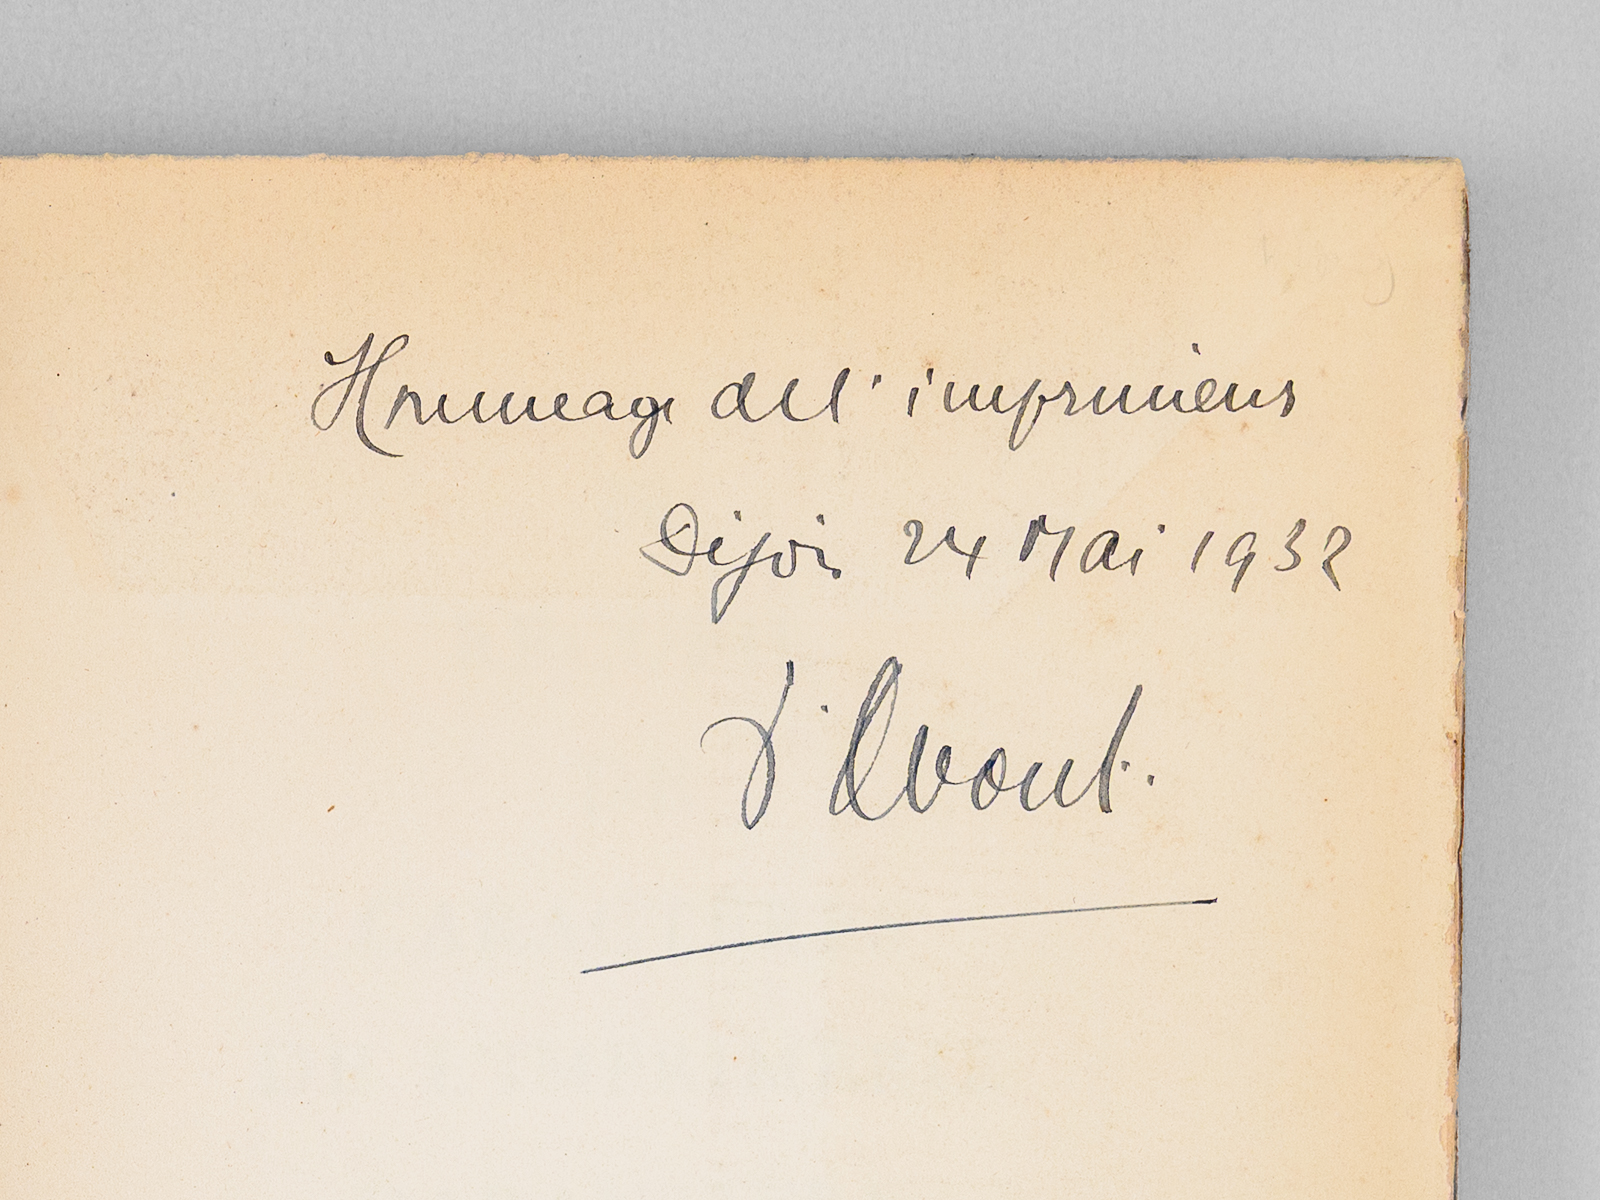 Hommage de l'imprimeur
Dijon 24 Mai 1932